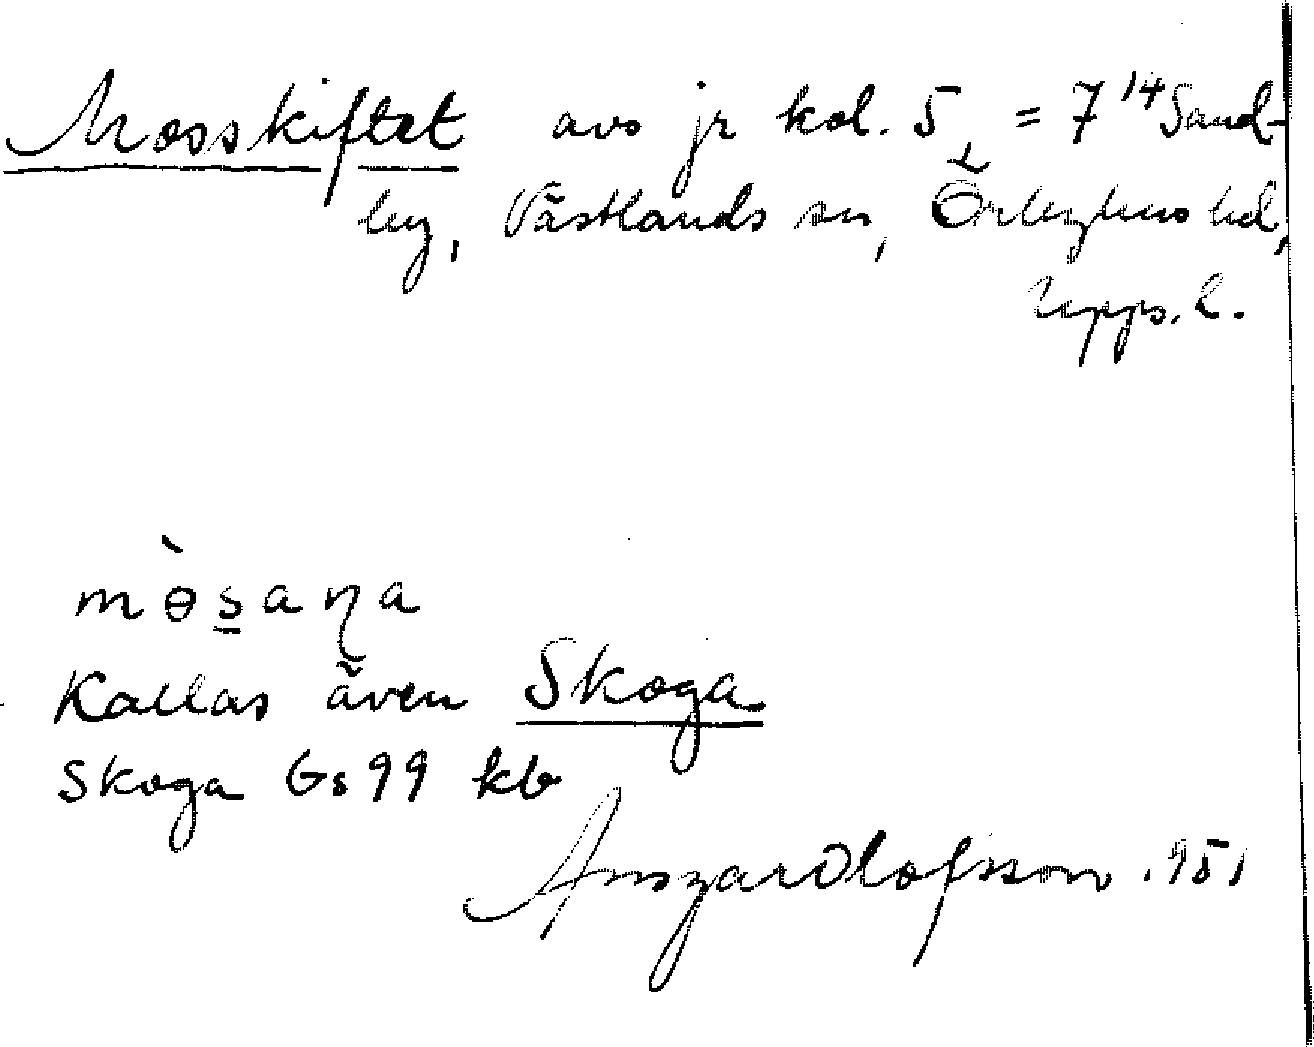 Mosskiftet avs jr kol. 5 = 7¹⁴ Sand-
by, Västlands sn, Örbyhus hd,
Upps. l.
mɵ̀s̲aɳa
Kallas även Skoga
Skoga Gs 99 kb
Ansgar Olofsson. 951